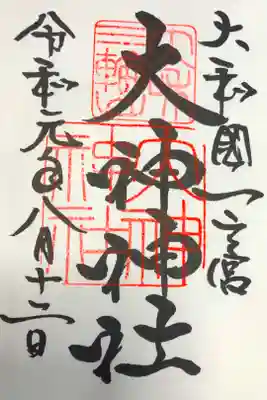 大和國一之宮
大神神社
令和元年八月十二日